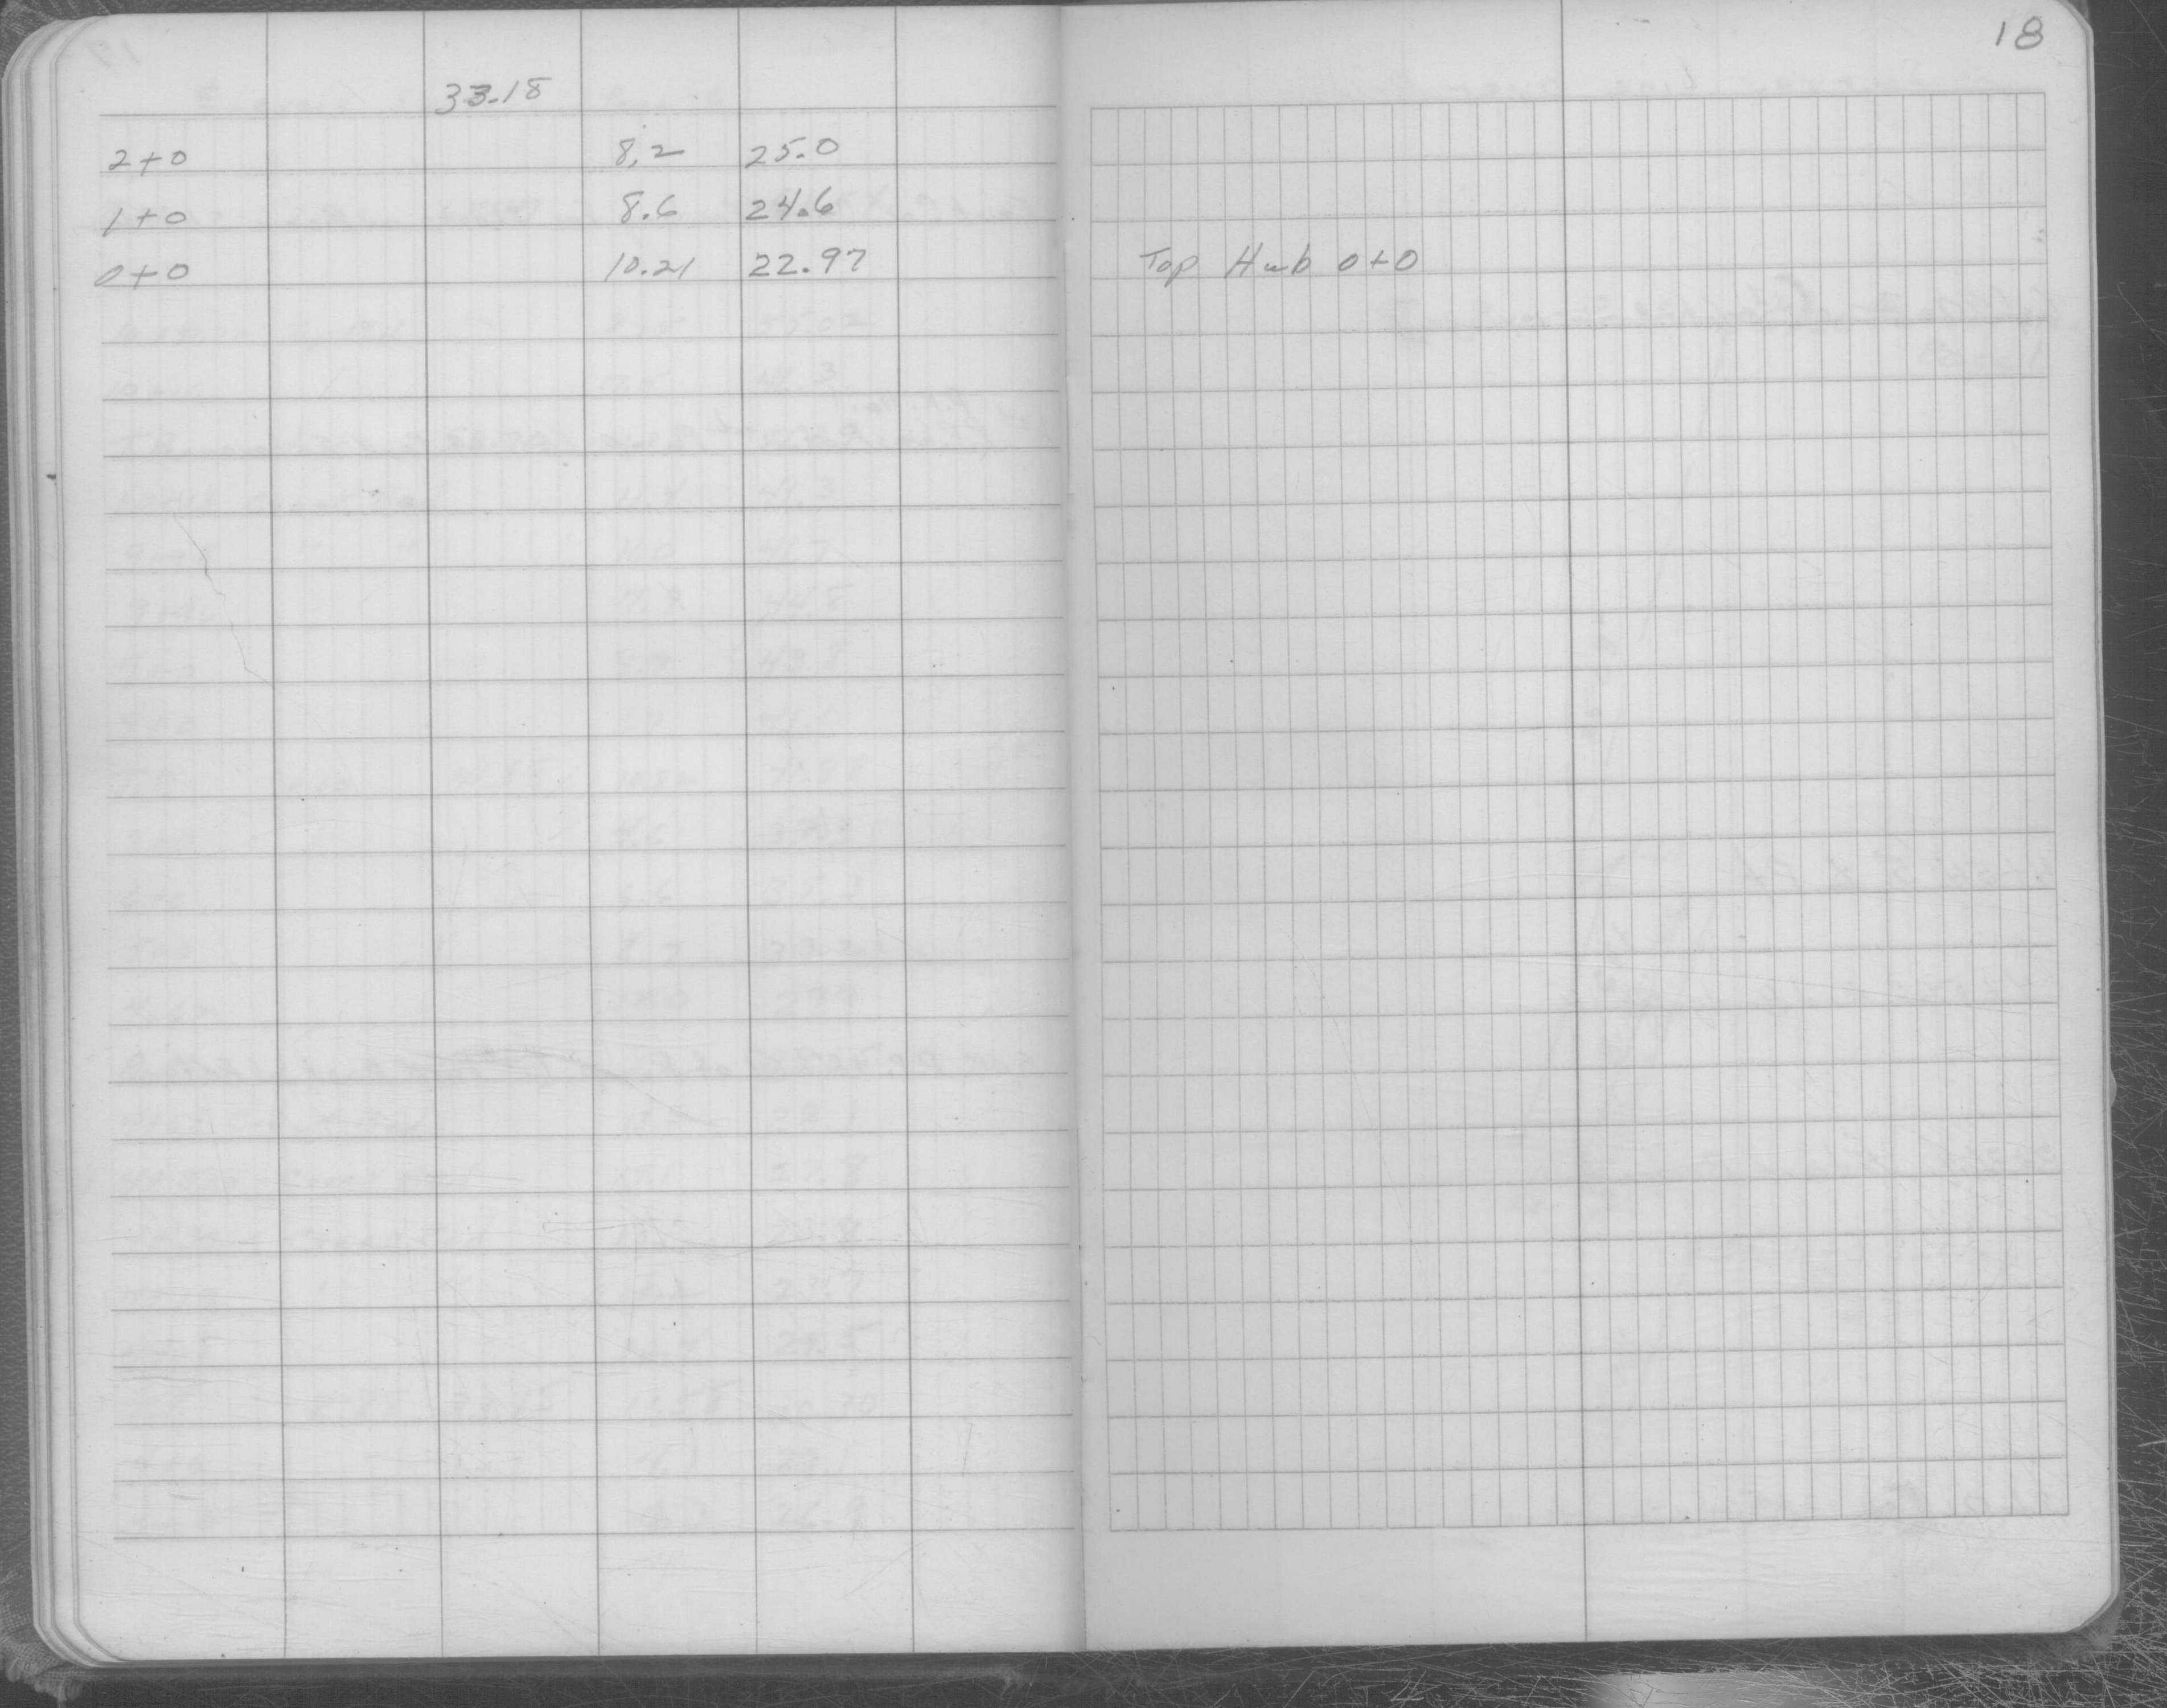 18
33.18
2+0 8.2 25.0
1+0 8.6 24.6
0+0 10.21 22.97 Top Hub 0+0